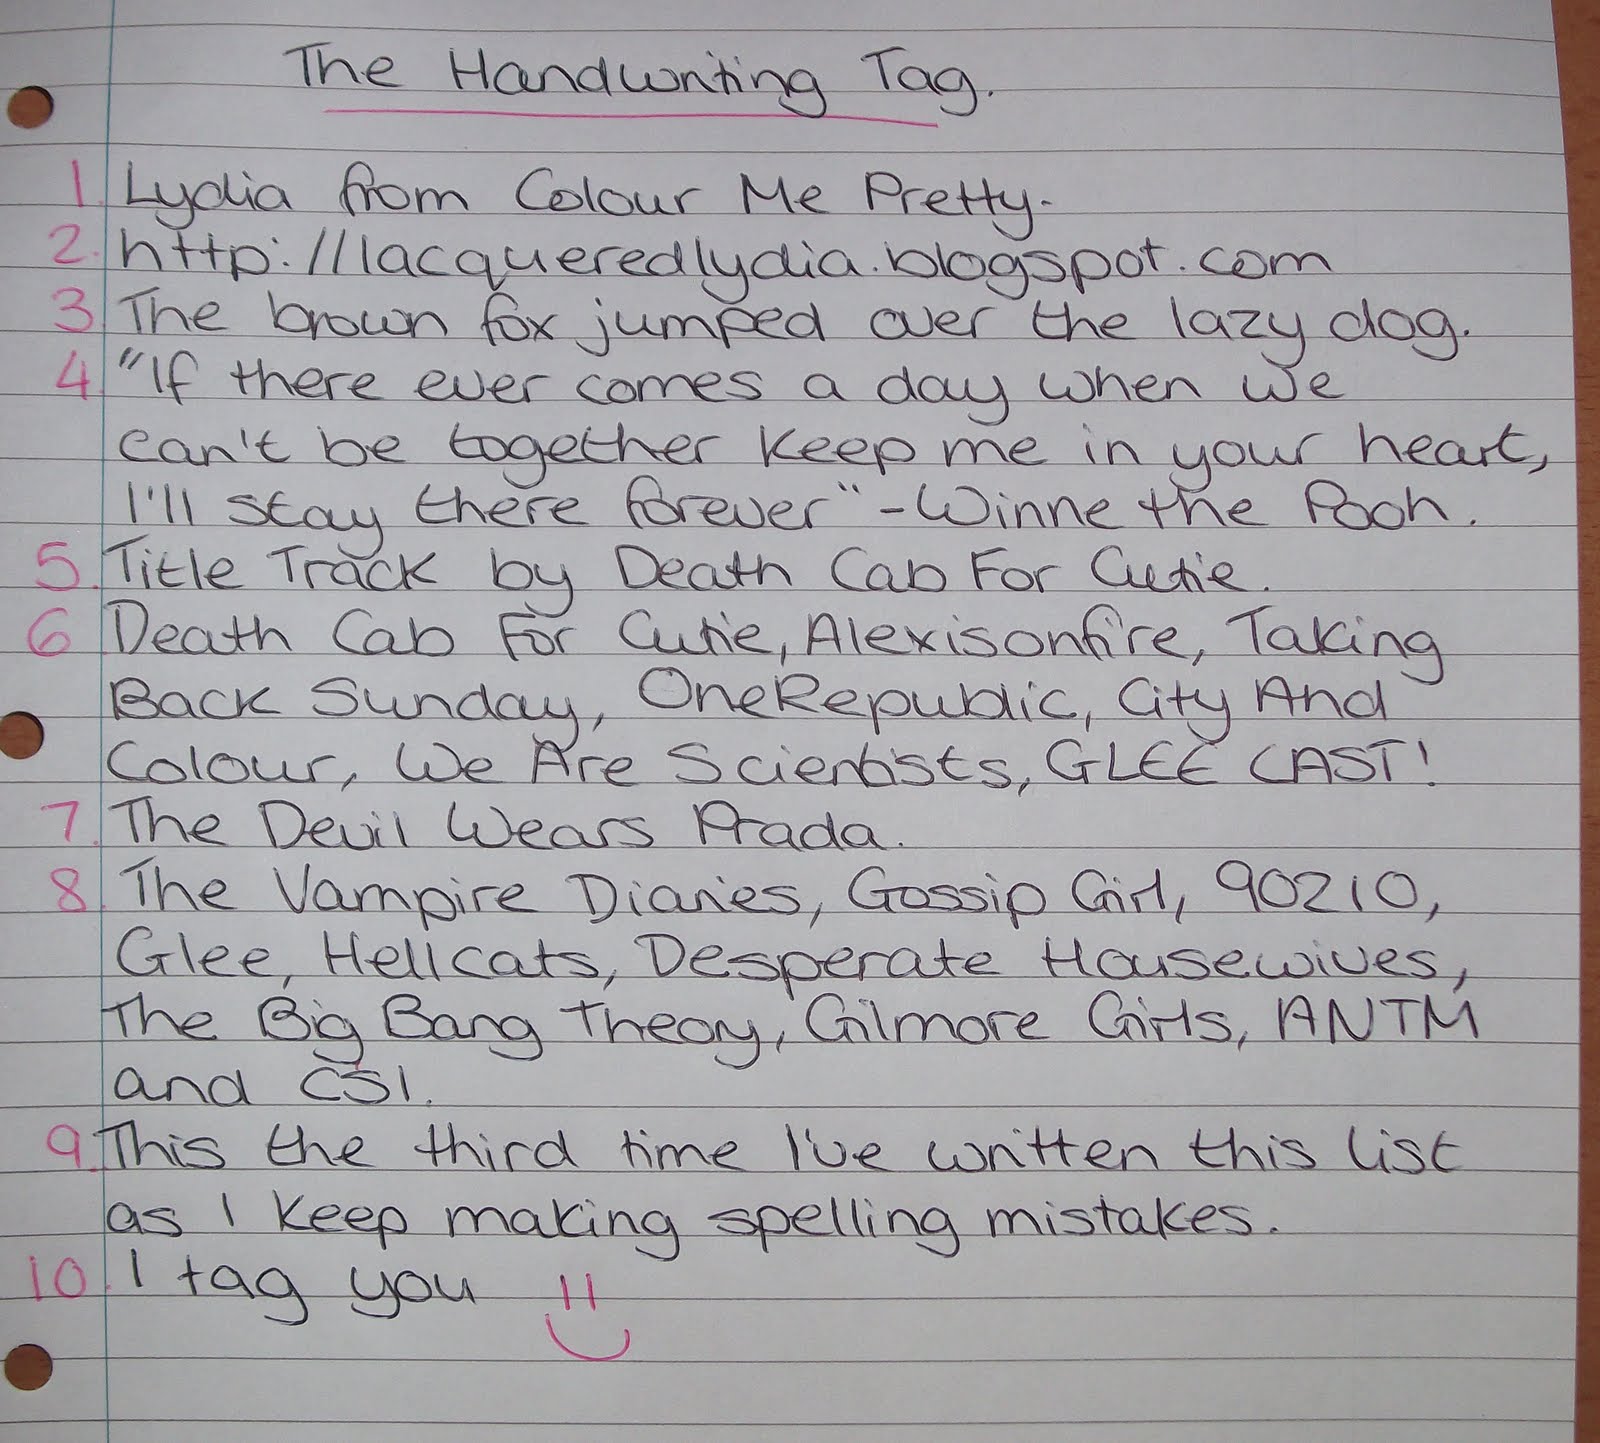 The Handwriting Tag.
1. Lydia from Colour Me Pretty.
2. http://lacqueredlydia.blogspot.com
3. The brown fox jumped over the lazy dog.
4. "If there ever comes a day when we
can't be together keep me in your heart,
I'll stay there forever" - Winne the Pooh.
5. Title Track by Death Cab For Cutie.
6 Death Cab For Cutie, Alexisonfire, Taking
Back Sunday, OneRepublic, City And
Colour, We Are Scientists, GLEE CAST!
7. The Devil Wears Prada.
8. The Vampire Diaries, Gossip Girl, 90210,
Glee, Hellcats, Desperate Housewives,
The Big Bang Theory, Gilmore Girls, ANTM
and CSI.
9. This the third time I've written this list
as I keep making spelling mistakes.
10. I tag you